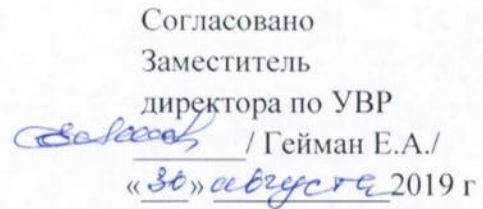 Согласовано
Заместитель
директора по УВР
/ Гейман Е.А./
«30» августа 2019 г